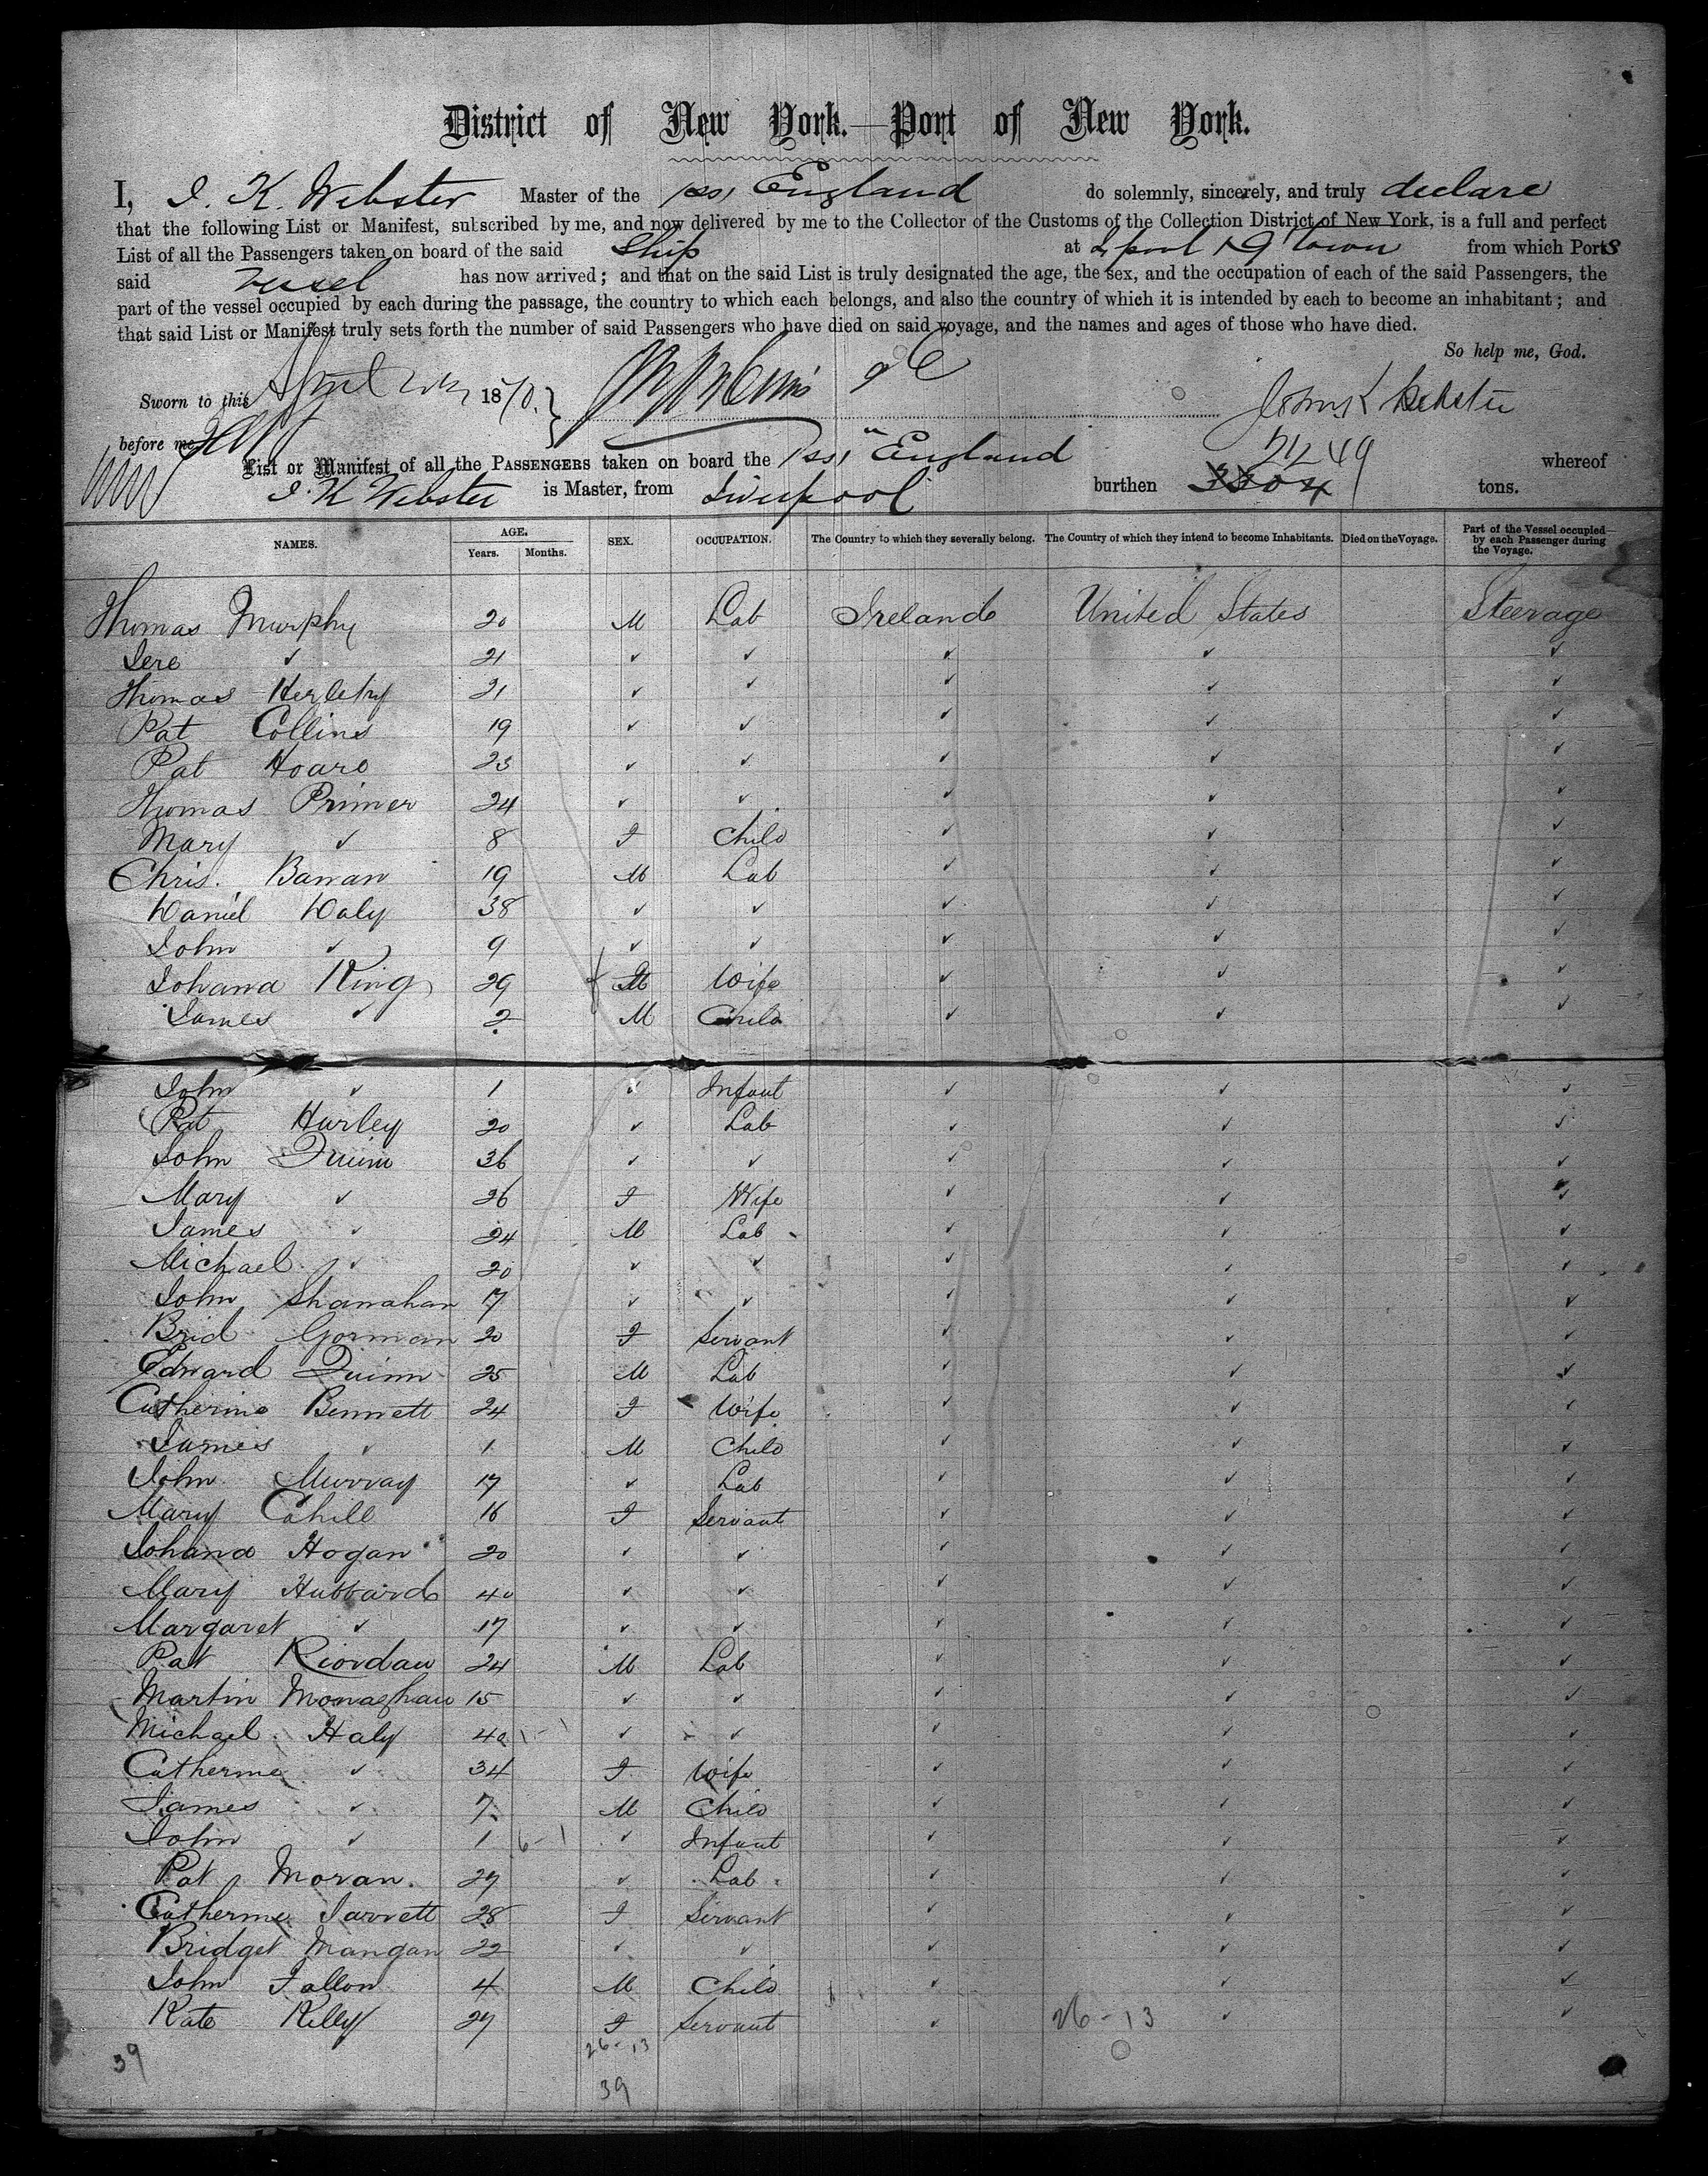 District of New York.—Port of New York.
I, J. K. Webster Master of the ss, England do solemnly, sincerely, and truly declare
that the following List or Manifest, subscribed by me, and now delivered by me to the Collector of the Customs of the Collection District of New York, is a full and perfect
List of all the Passengers taken on board of the said Ship at L'pool & Q'town from which Ports
said vessel has now arrived; and that on the said List is truly designated the age, the sex, and the occupation of each of the said Passengers, the
part of the vessel occupied by each during the passage, the country to which each belongs, and also the country of which it is intended by each to become an inhabitant; and
that said List or Manifest truly sets forth the number of said Passengers who have died on said voyage, and the names and ages of those who have died.
So help me, God.
Sworn to this April 1870.
John K Webster
before me
List or Manifest of all the PASSENGERS taken on board the ss, "England whereof
J. K Webster is Master, from Liverpool burthen 3304 tons.
NAMES. AGE. Years. Months. SEX. OCCUPATION. The Country to which they severally belong. The Country of which they intend to become Inhabitants. Died on the Voyage. Part of the Vessel occupied by each Passenger during the Voyage.
Thomas Murphy 20 M Lab Ireland United States Steerage
Jere ✓ 21 ✓ ✓ ✓ ✓ ✓
Thomas Herlehy 21 ✓ ✓ ✓ ✓ ✓
Pat Collins 19 ✓ ✓ ✓ ✓ ✓
Pat Hoare 23 ✓ ✓ ✓ ✓ ✓
Thomas Primer 24 ✓ ✓ ✓ ✓ ✓
Mary ✓ 8 F Child ✓ ✓ ✓
Chris. Bawan 19 M Lab ✓ ✓ ✓
Daniel Daly 38 ✓ ✓ ✓ ✓ ✓
John ✓ 9 ✓ ✓ ✓ ✓ ✓
Johana King 29 M Wife ✓ ✓ ✓
James ✓ 2 M Child ✓ ✓ ✓
John ✓ 1 ✓ Infant ✓ ✓ ✓
Pat Hurley 20 ✓ Lab ✓ ✓ ✓
John Quinn 36 ✓ ✓ ✓ ✓ ✓
Mary ✓ 26 F Wife ✓ ✓ ✓
James ✓ 24 M Lab ✓ ✓ ✓
Michael ✓ 20 ✓ ✓ ✓ ✓ ✓
John Shanahan 17 ✓ ✓ ✓ ✓ ✓
Brid Gorman 20 F Servant ✓ ✓ ✓
Edward Quinn 25 M Lab ✓ ✓ ✓
Catherine Bennett 24 F Wife ✓ ✓ ✓
James ✓ 1 M Child ✓ ✓ ✓
John Murray 17 ✓ Lab ✓ ✓ ✓
Mary Cahill 16 F Servant ✓ ✓ ✓
Johana Hogan 20 ✓ ✓ ✓ ✓ ✓
Mary Hubbard 40 ✓ ✓ ✓ ✓ ✓
Margaret ✓ 17 ✓ ✓ ✓ ✓ ✓
Pat Riordan 24 M Lab ✓ ✓ ✓
Martin Monaghan 15 ✓ ✓ ✓ ✓ ✓
Michael Haly 40 ✓ ✓ ✓ ✓ ✓
Catherine ✓ 34 F Wife ✓ ✓ ✓
James ✓ 7 M Child ✓ ✓ ✓
John ✓ 1 6-1 ✓ Infant ✓ ✓ ✓
Pat Moran. 27 ✓ Lab ✓ ✓ ✓
Catherine Jarrett 28 F Servant ✓ ✓ ✓
Bridget Mangan 22 ✓ ✓ ✓ ✓ ✓
John Fallon 4 M Child ✓ ✓ ✓
Kate Kelly 27 F Servant ✓ 26-13 ✓ ✓
39 26-13
39